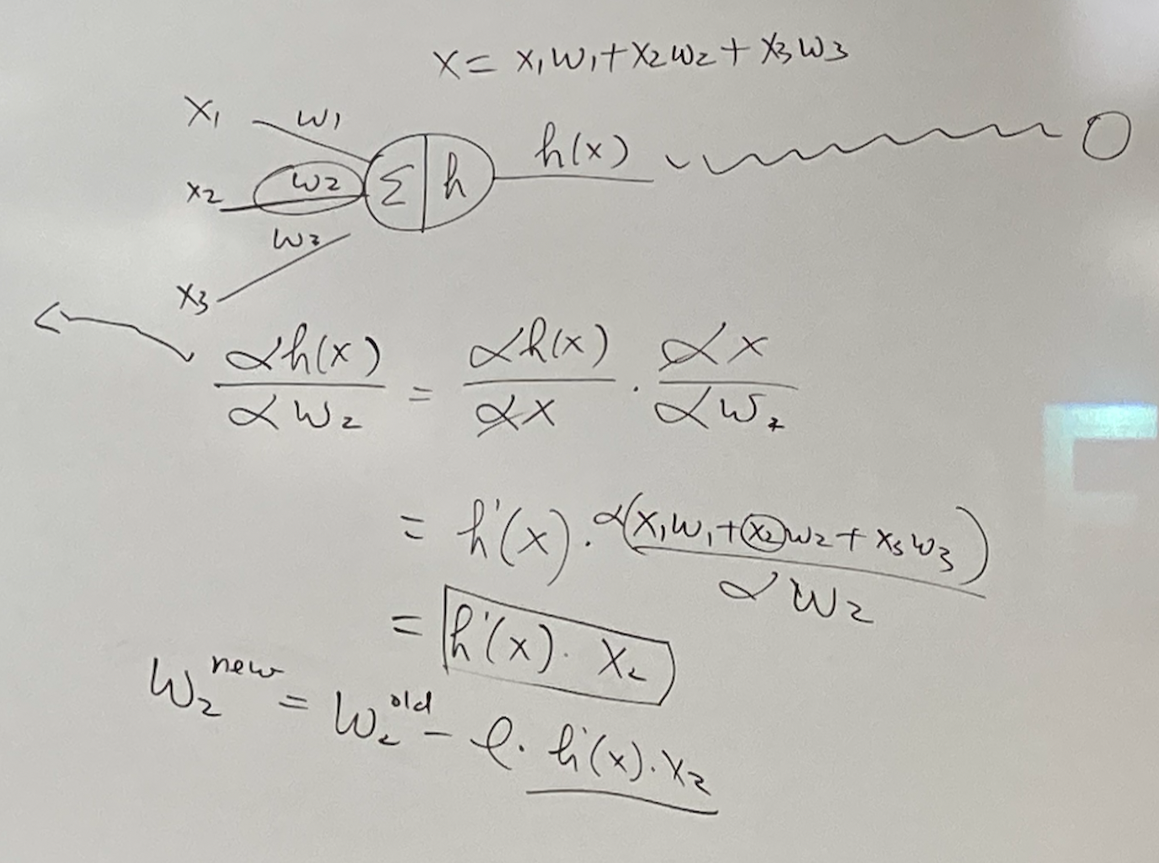 x = x₁w₁ + x₂w₂ + x₃w₃
x₁ w₁
x₂ w₂ Σ | h h(x)
w₃
x₃
αh(x)/αw₂ = αh(x)/αx · αx/αw₂
= h'(x) · α(x₁w₁ + x₂w₂ + x₃w₃)/αw₂
= h'(x) · x₂
w₂ⁿᵉʷ = w₂ᵒˡᵈ - ℓ · h'(x) · x₂